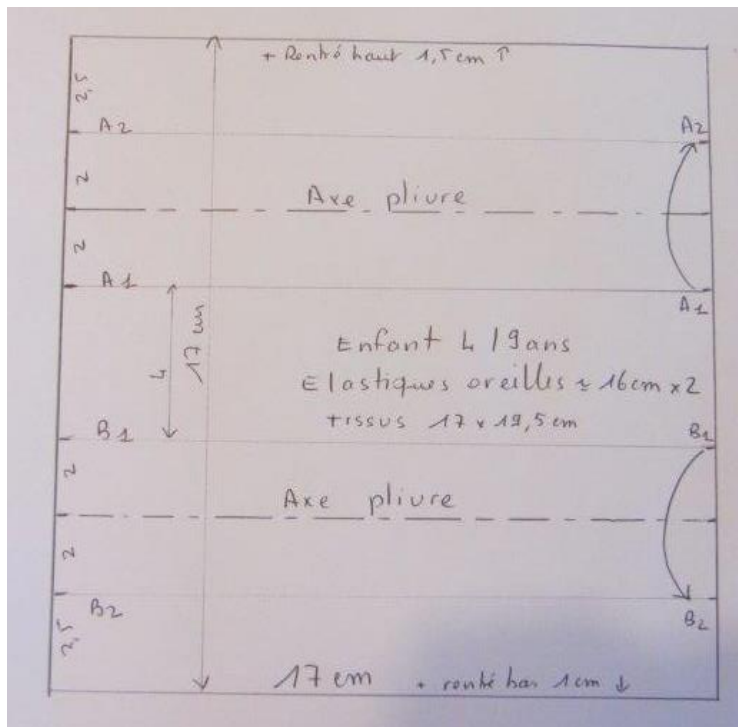 + Rentré haut 1,5 cm ↑
2,5
A2 A2
2
Axe plivre
2
A1 A1
17 cm
4
Enfant 4 / 9 ans
Elastiques oreilles ≈ 16cm x 2
tissus 17 x 19,5 cm
B1 B1
2
Axe plivre
2
B2 B2
2,5
17 cm + rentré bas 1 cm ↓